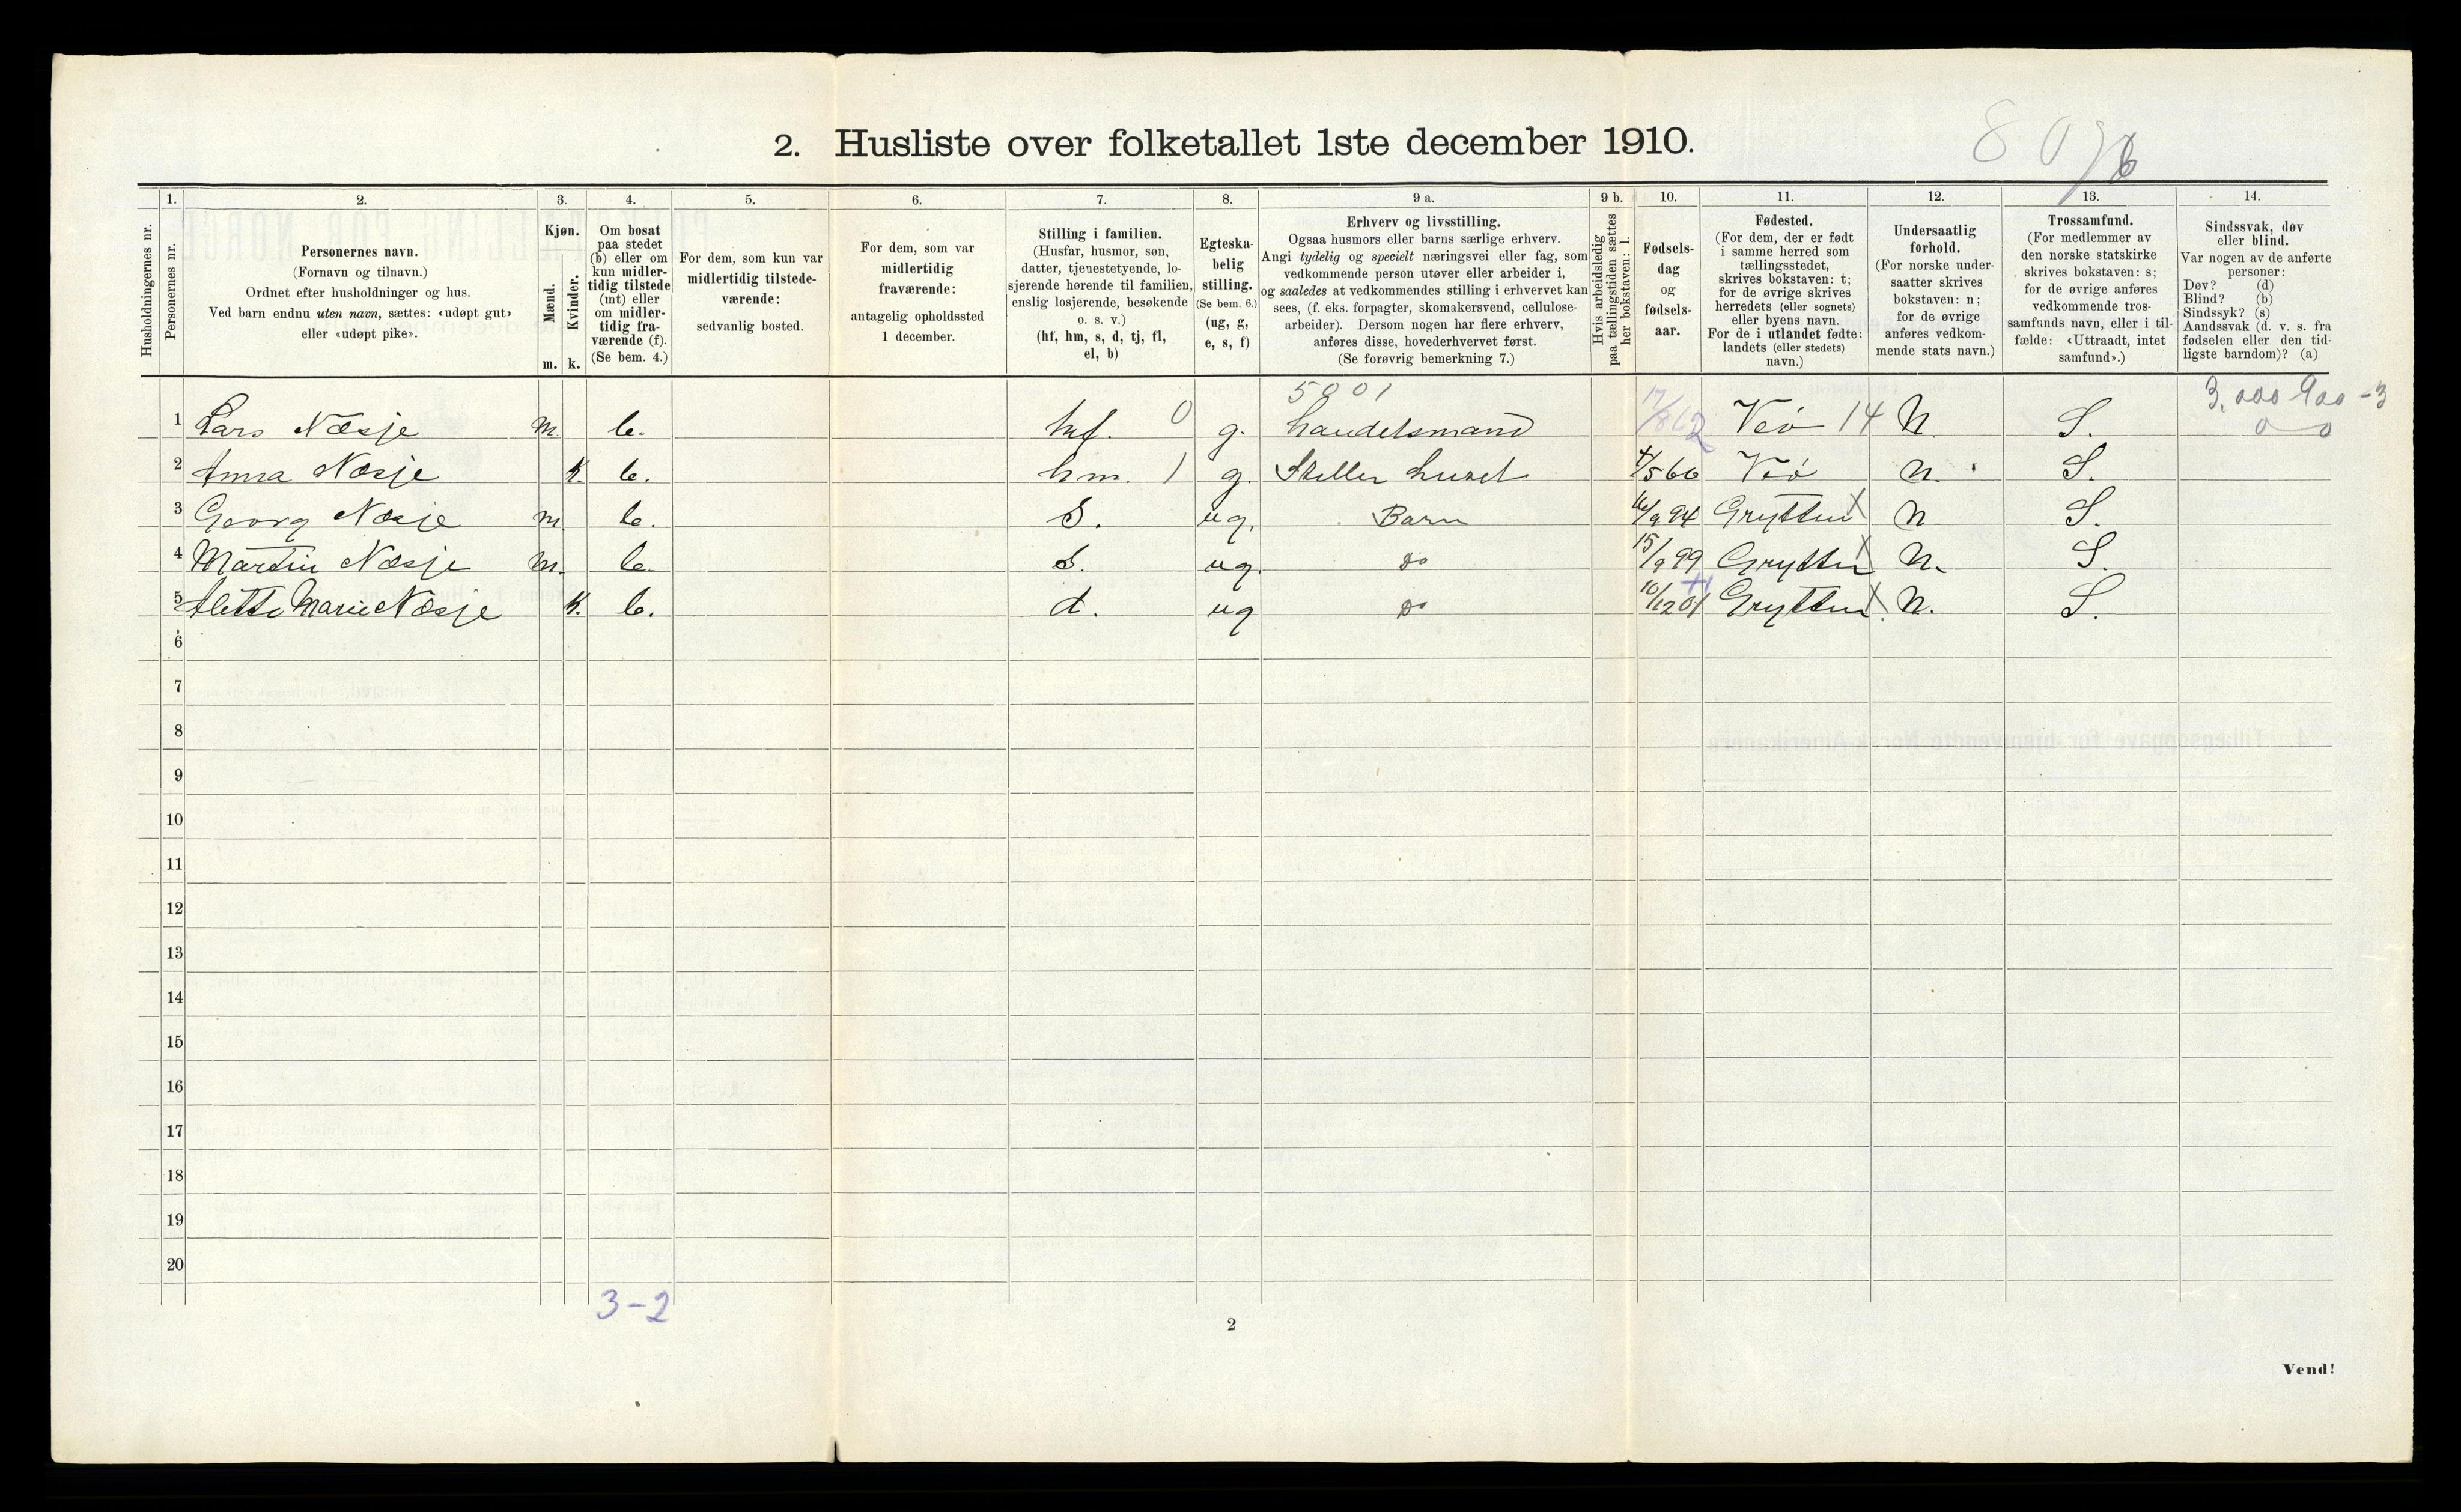 2. Husliste over folketallet 1ste december 1910.
1. 2. 3. 4. 5. 6. 7. 8. 9 a. 9 b. 10. 11. 12. 13. 14.
Husholdningernes nr.
Personernes nr.
Personernes navn.
(Fornavn og tilnavn.)
Ordnet efter husholdninger og hus.
Ved barn endnu uten navn, sættes: «udøpt gut»
eller «udøpt pike».
Kjøn.
Mænd.
Kvinder.
m. k.
Om bosat
paa stedet
(b) eller om
kun midler-
tidig tilstede
(mt) eller
om midler-
tidig fra-
værende (f).
(Se bem. 4.)
For dem, som kun var
midlertidig tilstede-
værende:
sedvanlig bosted.
For dem, som var
midlertidig
fraværende:
antagelig opholdssted
1 december.
Stilling i familien.
(Husfar, husmor, søn,
datter, tjenestetyende, lo-
sjerende hørende til familien,
enslig losjerende, besøkende
o. s. v.)
(hf, hm, s, d, tj, fl,
el, b)
Egteska-
belig
stilling.
(Se bem. 6.)
(ug, g,
e, s, f)
Erhverv og livsstilling.
Ogsaa husmors eller barns særlige erhverv.
Angi tydelig og specielt næringsvei eller fag, som
vedkommende person utøver eller arbeider i,
og saaledes at vedkommendes stilling i erhvervet kan
sees, (f. eks. forpagter, skomakersvend, cellulose-
arbeider). Dersom nogen har flere erhverv,
anføres disse, hovederhvervet først.
(Se forøvrig bemerkning 7.)
Hvis arbeidsledig
paa tællingstiden sættes
her bokstaven: l.
Fødsels-
dag
og
fødsels-
aar.
Fødested.
(For dem, der er født
i samme herred som
tællingsstedet,
skrives bokstaven: t;
for de øvrige skrives
herredets (eller sognets)
eller byens navn.
For de i utlandet fødte:
landets (eller stedets)
navn.)
Undersaatlig
forhold.
(For norske under-
saatter skrives
bokstaven: n;
for de øvrige
anføres vedkom-
mende stats navn.)
Trossamfund.
(For medlemmer av
den norske statskirke
skrives bokstaven: s;
for de øvrige anføres
vedkommende tros-
samfunds navn, eller i til-
fælde: «Uttraadt, intet
samfund».)
Sindssvak, døv
eller blind.
Var nogen av de anførte
personer:
Døv? (d)
Blind? (b)
Sindssyk? (s)
Aandssvak (d. v. s. fra
fødselen eller den tid-
ligste barndom)? (a)
5001
1 Lars Næsje m. b. hf. 0 g. handelsmand 17/8 62 Veø 14 N. S.
2 Anna Næsje k. b. hm. 1 g. Steller huset 4/5 66 Veø n. S.
3 Georg Næsje m. b. S. ug. Barn 94 Grytten X N. S.
4 Martin Næsje m. b. S. ug. Do 15/9 99 Grytten X N. S.
5 Alette Marie Næsje k. b. d. ug Do 10/12 01 Grytten X N. S.
6
7
8
9
10
11
12
13
14
15
16
17
18
19
20
3-2
2
Vend!